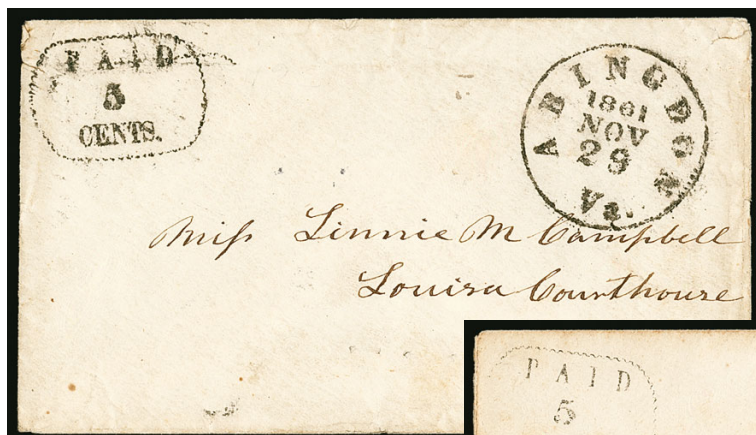 PAID
5
CENTS.
ABINGDON
1861
NOV
29
Va.
Miss Linnie M Campbell
Louisa Courthouse
PAID
5